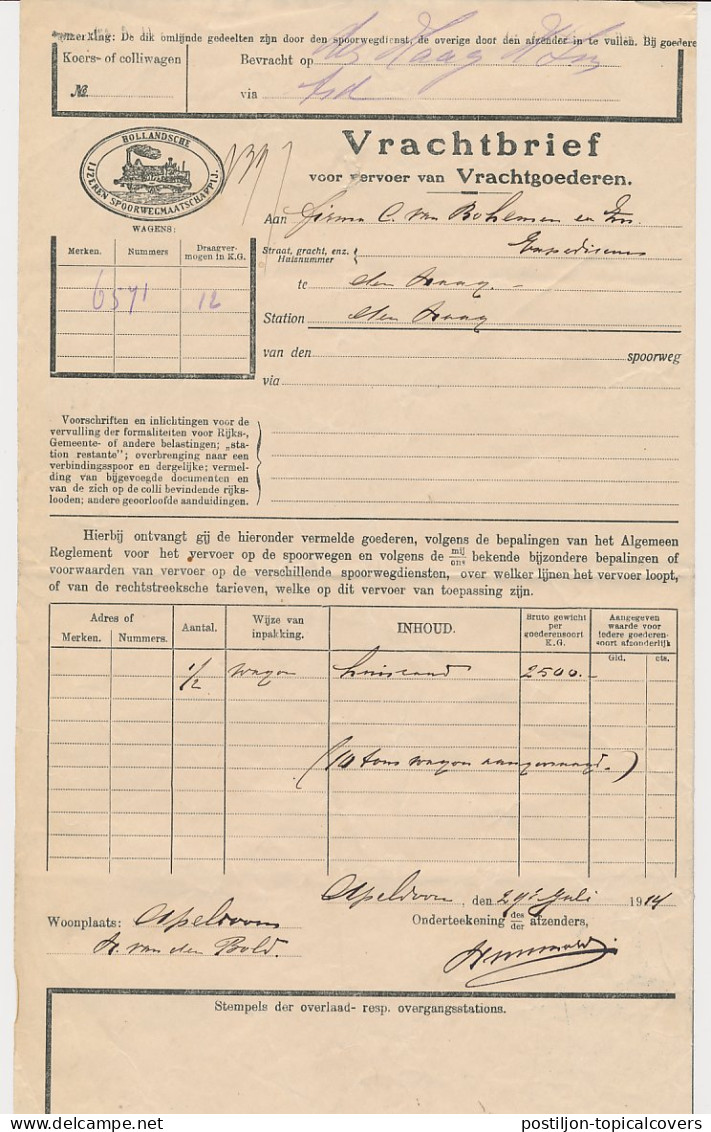 Aanmerking: De dik omlijnde gedeelten zijn door den spoorwegdienst, de overige door den afzender in te vullen. Bij goedere
Koers- of colliwagen
№.
Bevracht op den Haag HSm
via
HOLLANDSCHE
IJZEREN SPOORWEGMAATSCHAPPIJ.
Vrachtbrief
voor vervoer van Vrachtgoederen.
WAGENS:
Merken. Nummers Draagver-
mogen in K.G.
6571 12
Aan Firma C. van Bohemen en Zn.
Straat, gracht, enz.
Huisnummer
Expediteurs
te den Haag.
Station den Haag
van den spoorweg
via
Voorschriften en inlichtingen voor de
vervulling der formaliteiten voor Rijks-,
Gemeente- of andere belastingen; „sta-
tion restante"; overbrenging naar een
verbindingsspoor en dergelijke; vermel-
ding van bijgevoegde documenten en
van de zich op de colli bevindende rijks-
looden; andere geoorloofde aanduidingen.
Hierbij ontvangt gij de hieronder vermelde goederen, volgens de bepalingen van het Algemeen
Reglement voor het vervoer op de spoorwegen en volgens de mij/ons bekende bijzondere bepalingen of
voorwaarden van vervoer op de verschillende spoorwegdiensten, over welker lijnen het vervoer loopt,
of van de rechtstreeksche tarieven, welke op dit vervoer van toepassing zijn.
Adres of
Merken. Nummers.
Aantal.
Wijze van
inpakking.
INHOUD.
Bruto gewicht
per
goederensoort
K.G.
Aangegeven
waarde voor
iedere goederen-
soort afzonderlijk
Gld. cts.
1/2 wagon huisraad 2500.-
(10 tons wagon aangevraagd.)
Apeldoorn, den 29 Juli 1914
Woonplaats: Apeldoorn
Onderteekening des/der afzenders,
H. van den Bold.
Stempels der overlaad- resp. overgangsstations.
postiljon-topicalcovers